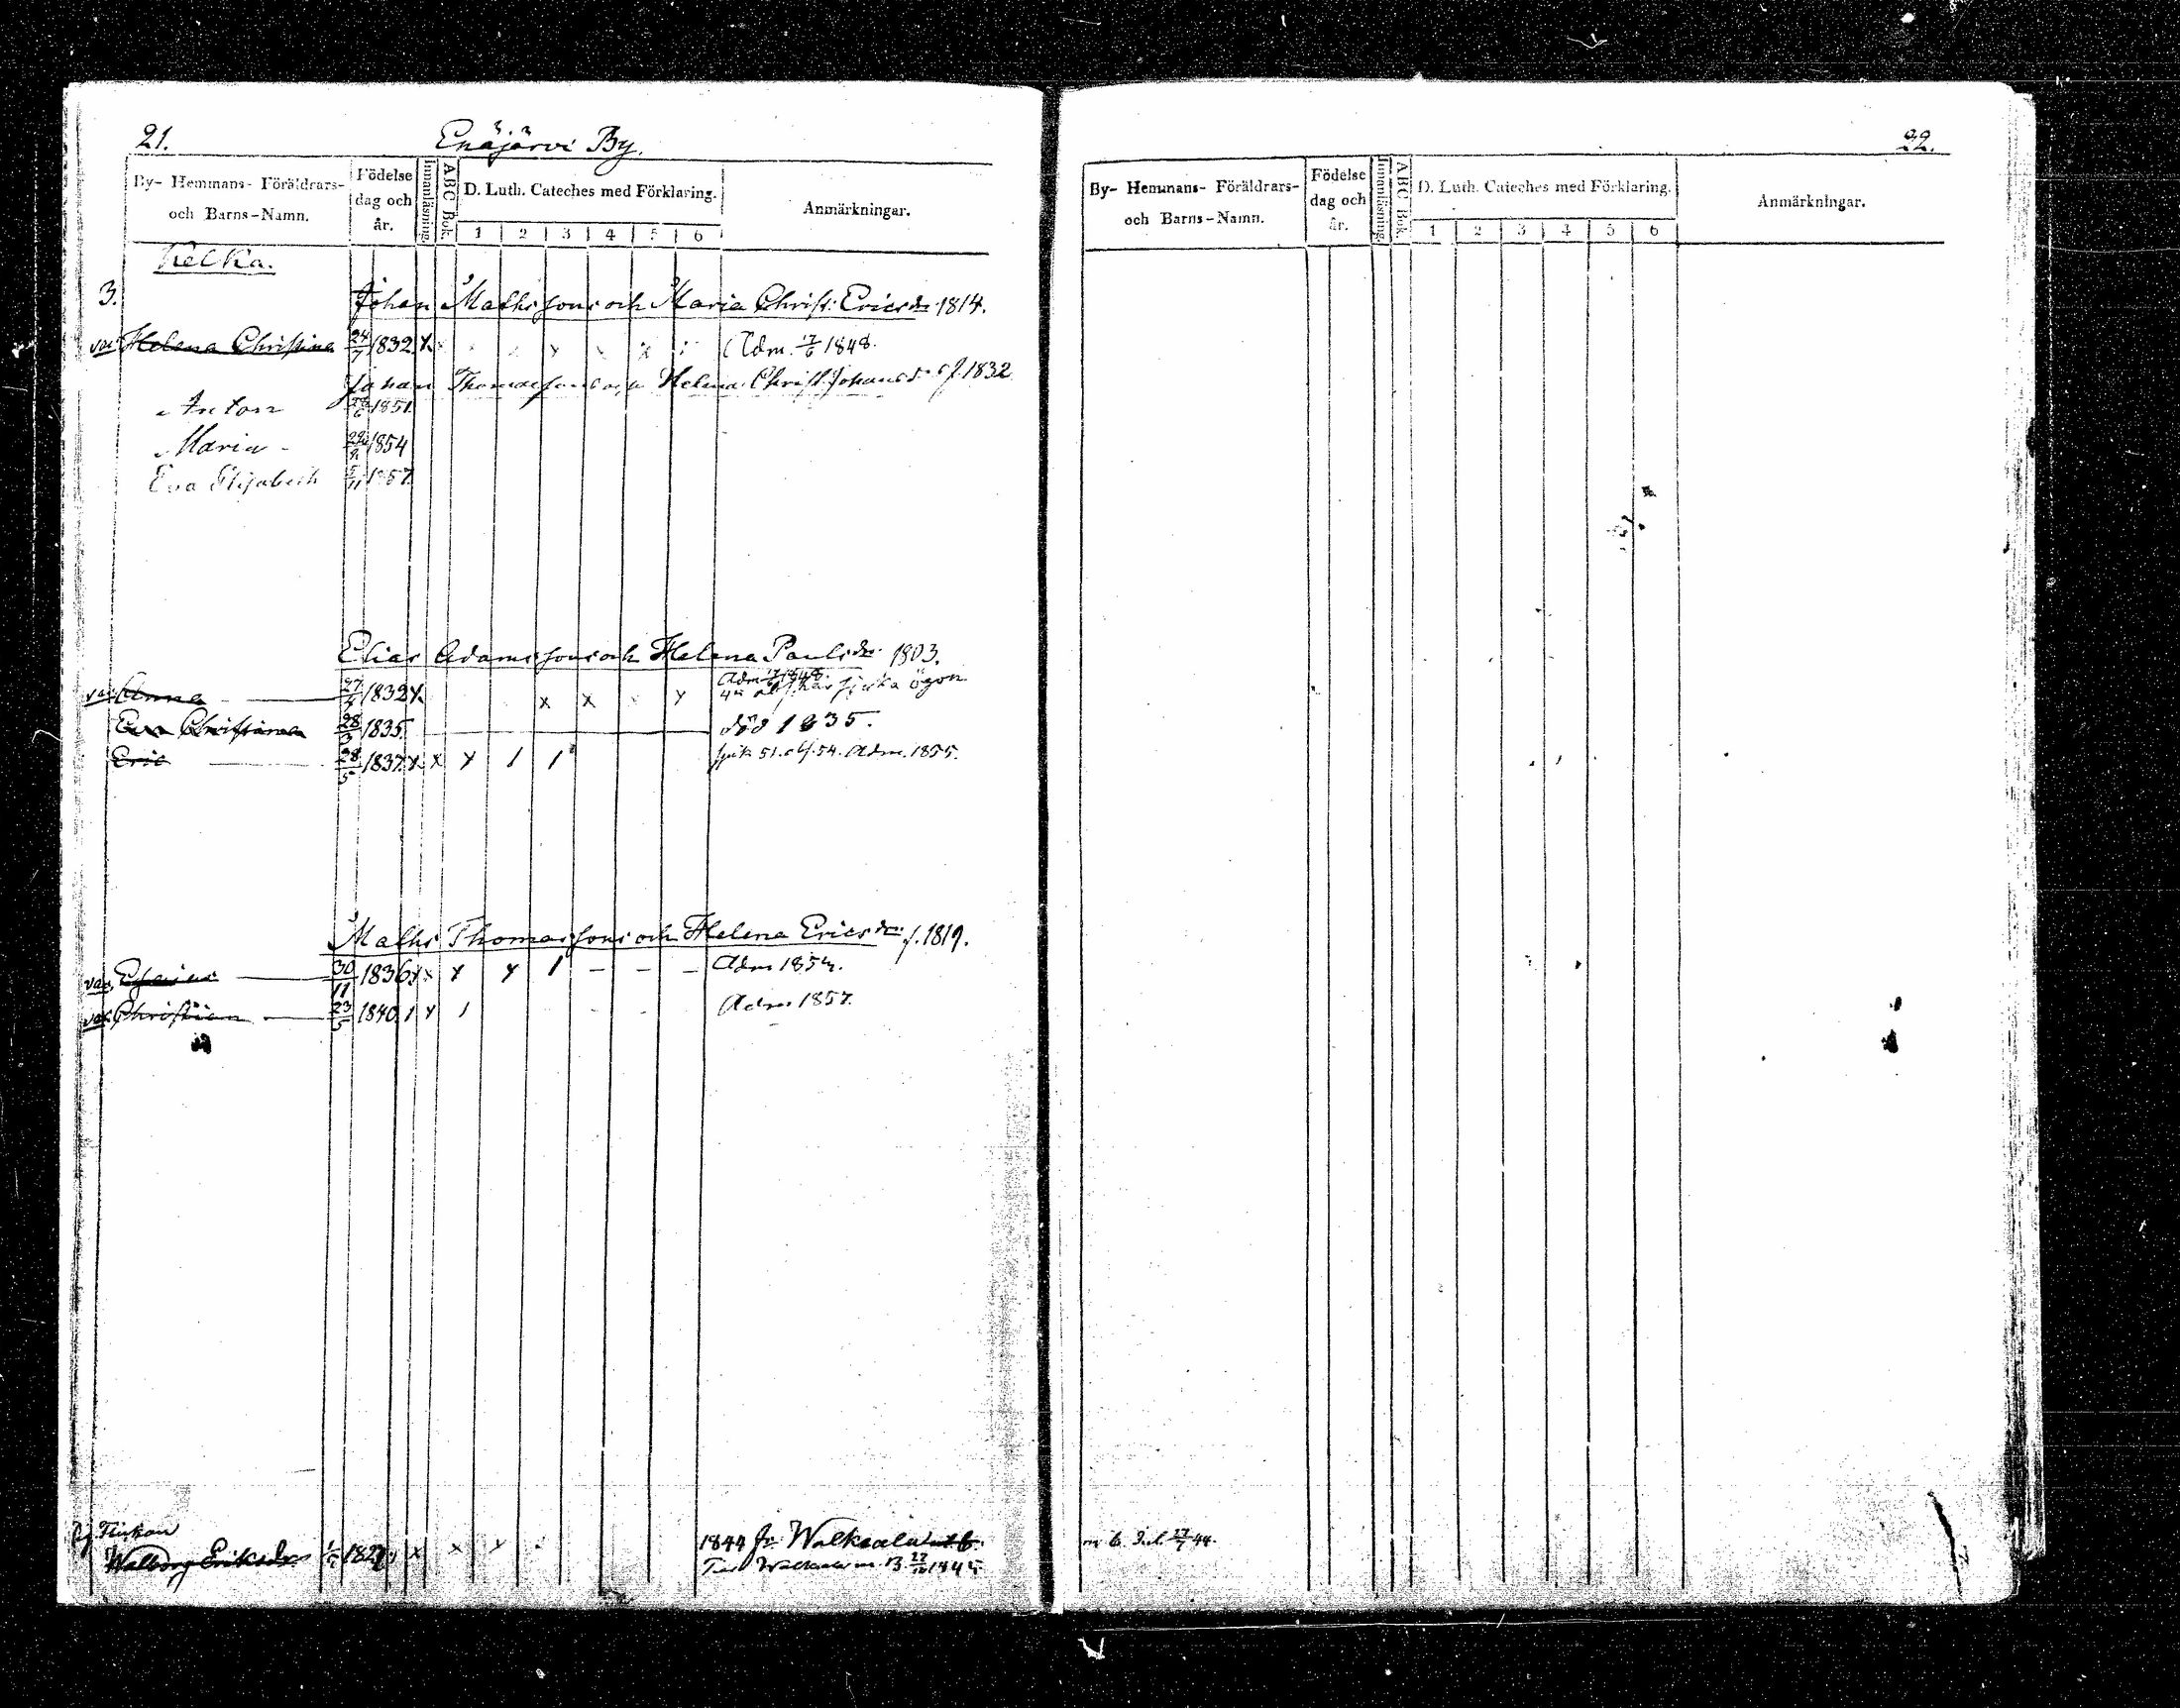 21.
Enäjärvi By.
By- Hemmans- Föräldrars- och Barns-Namn.
Födelse dag och år.
Innanläsning.
ABC Bok.
D. Luth. Cateches med Förklaring.
1 2 3 4 5 6
Anmärkningar.
Kelka.
3. Johan Maths sons och Maria Christ. Ericsdr 1814.
Helena Christina 24/7 1832. x Adm. 1848.
Johan Thomassons och Helena Christ. Johansdr f. 1832
Anton 1851.
Maria - 1854
Eva Elisabeth 5/11 1857.
Elias Adamssons och Helena Paulsdr 1803.
Anna 1832 x x x x Adm. 1848. har sjuka ögon
Eva Christina 28/3 1835 död 1835.
Eric 28/5 1837. x x x 1 1 sjuk 51. abs. 54. Adm. 1855.
Maths Thomassons och Helena Ericsdr f. 1819.
30/11 1836 x x x x 1 - - - Adm 1854.
Christian 23/5 1840. 1 x 1 Adm 1857.
Walborg Eriksdr 1827 x x x 1844 fr. Walkeala
Till Walkeala m. B. 1845
22.
By- Hemmans- Föräldrars- och Barns-Namn.
Födelse dag och år.
Innanläsning.
ABC Bok.
D. Luth. Cateches med Förklaring.
1 2 3 4 5 6
Anmärkningar.
m b. 27/7 44.